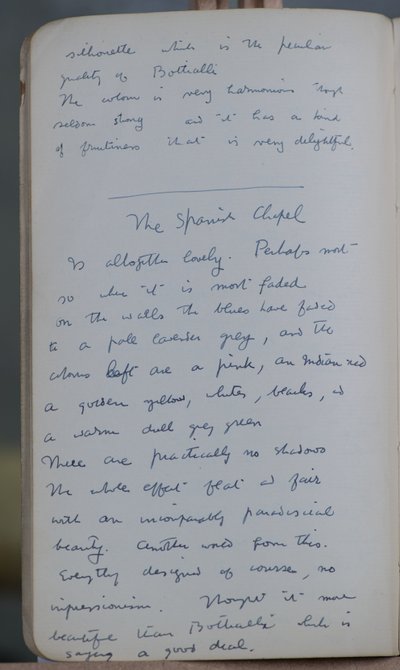 silhouette which is the peculiar
quality of Botticelli
The colour is very harmonious though
seldom strong and it has a kind
of fruitiness that is very delightful.
The Spanish Chapel
Is altogether lovely. Perhaps most
so when it is most faded
on the walls the blues have faded
to a pale lavender grey, and the
colours left are a pink, an Indian red
a golden yellow, whites, blacks, &
a warm dull grey green
There are practically no shadows
The whole effect flat & fair
with an incomparably paradisical
beauty. Another world from this.
Everything designed of course, no
impressionism. Thought it more
beautiful than Botticelli which is
saying a good deal.